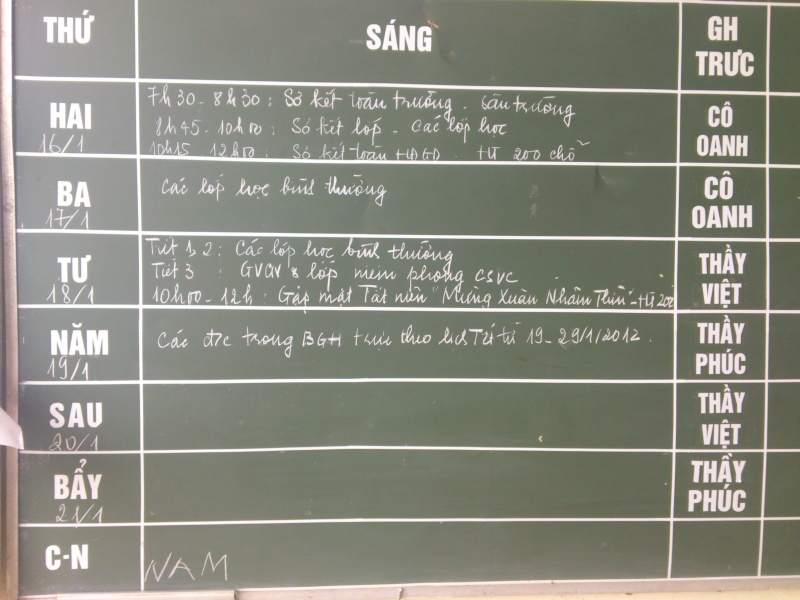 THỨ SÁNG GH TRƯC
HAI 16/1 7h30 - 8h30 : Sơ kết toàn trường - Sân trường
8h45 - 10h00 : Sơ kết lớp - Các lớp học
10h15 12h00 : Sơ kết toàn HĐGD - HT 200 chỗ
CÔ OANH
BA 17/1 Các lớp học bình thường CÔ OANH
TƯ 18/1 Tiết 1, 2 : Các lớp học bình thường
Tiết 3 : GVCN & lớp niêm phong CSVC
10h00 - 12h : Gặp mặt Tất niên "Mừng Xuân Nhâm Thìn" - HT 200
THẦY VIỆT
NĂM 19/1 Các đ/c trong BGH trực theo lịch Tết từ 19 - 29/1/2012. THẦY PHÚC
SAU 20/1 THẦY VIỆT
BẨY 21/1 THẦY PHÚC
C-N NAM